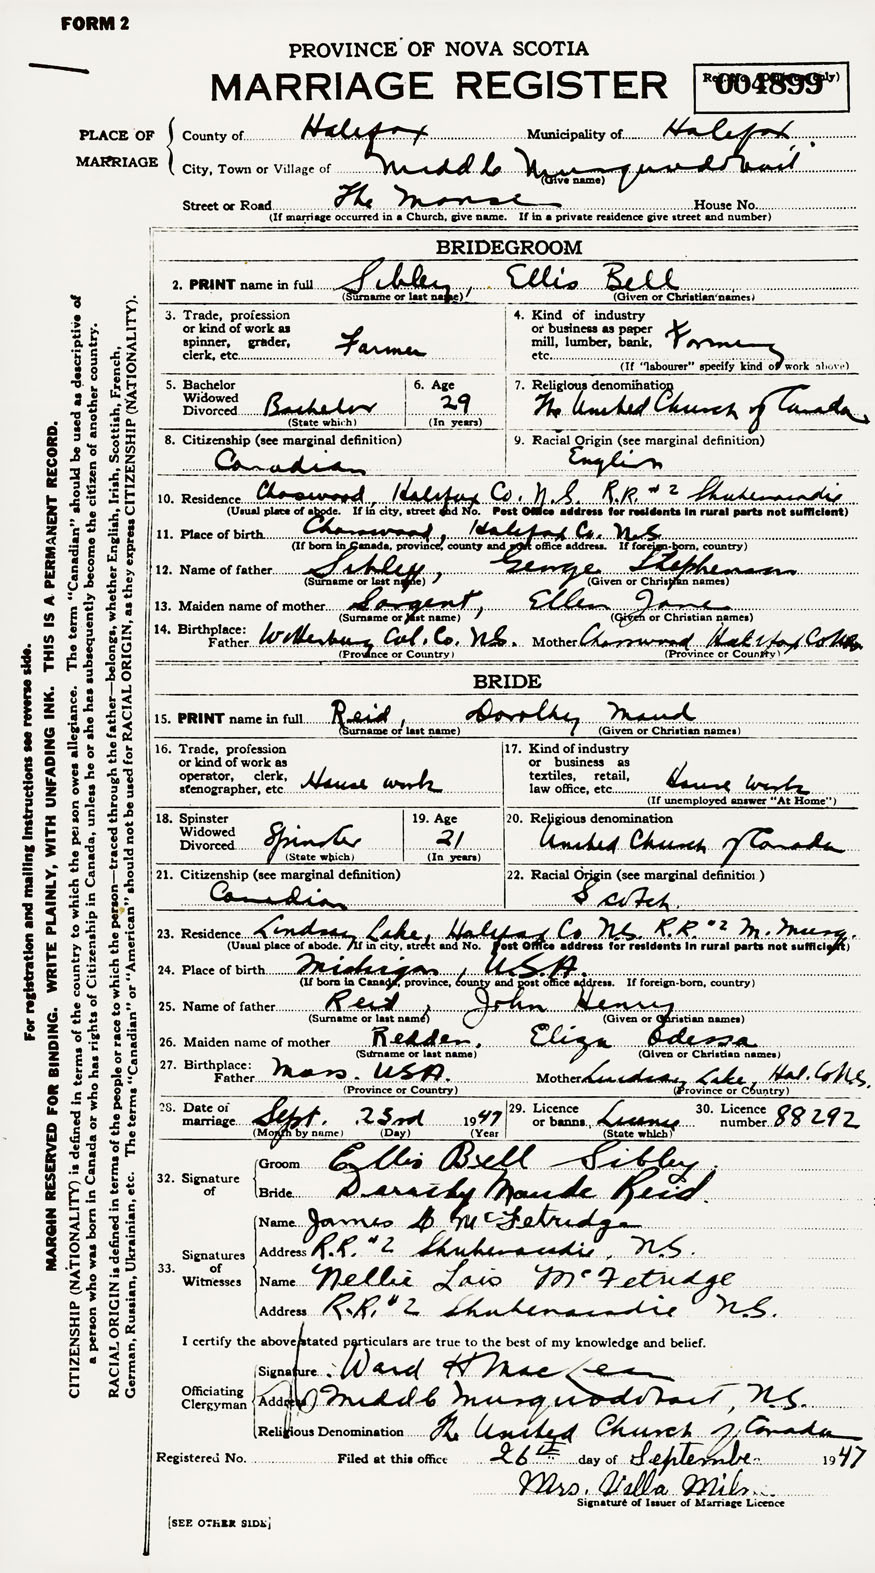 FORM 2
PROVINCE OF NOVA SCOTIA
MARRIAGE REGISTER
004899
PLACE OF MARRIAGE
County of Halifax Municipality of Halifax
City, Town or Village of Middle Musquodoboit
(Give name)
Street or Road The Manse House No.
(If marriage occurred in a Church, give name. If in a private residence give street and number)
BRIDEGROOM
2. PRINT name in full Sibley, Ellis Bell
(Surname or last name) (Given or Christian names)
3. Trade, profession
or kind of work as
spinner, grader,
clerk, etc. Farmer
4. Kind of industry
or business as paper
mill, lumber, bank,
etc. Farming
(If "labourer" specify kind of work above)
5. Bachelor
Widowed
Divorced Bachelor
(State which)
6. Age
29
(In years)
7. Religious denomination
The United Church of Canada
8. Citizenship (see marginal definition)
Canadian
9. Racial Origin (see marginal definition)
English
10. Residence Chaswood, Halifax Co. N.S. R.R. #2 Shubenacadie
(Usual place of abode. If in city, street and No. Post Office address for residents in rural parts not sufficient)
11. Place of birth Chaswood, Halifax Co. N.S.
(If born in Canada, province, county and post office address. If foreign-born, country)
12. Name of father Sibley, George Stephenson
(Surname or last name) (Given or Christian names)
13. Maiden name of mother Sargent, Ellen Jane
(Surname or last name) (Given or Christian names)
14. Birthplace:
Father Wittenburg Col. Co. N.S. Mother Chaswood Halifax Co N.S.
(Province or Country) (Province or Country)
BRIDE
15. PRINT name in full Reid, Dorothy Maud
(Surname or last name) (Given or Christian names)
16. Trade, profession
or kind of work as
operator, clerk,
stenographer, etc. House work
17. Kind of industry
or business as
textiles, retail,
law office, etc. House work
(If unemployed answer "At Home")
18. Spinster
Widowed
Divorced Spinster
(State which)
19. Age
21
(In years)
20. Religious denomination
United Church of Canada
21. Citizenship (see marginal definition)
Canadian
22. Racial Origin (see marginal definition)
Scotch.
23. Residence Lindsay Lake, Halifax Co N.S. R.R. #2 M. Musq.
(Usual place of abode. If in city, street and No. Post Office address for residents in rural parts not sufficient)
24. Place of birth Michigan, U.S.A.
(If born in Canada, province, county and post office address. If foreign-born, country)
25. Name of father Reid, John Henry
(Surname or last name) (Given or Christian names)
26. Maiden name of mother Redden, Eliza Odessa
(Surname or last name) (Given or Christian names)
27. Birthplace:
Father Mass. USA. Mother Lindsay Lake, Hal. Co N.S.
(Province or Country) (Province or Country)
28. Date of
marriage Sept. 23rd 1947
(Month by name) (Day) (Year
29. Licence
or banns License
(State which)
30. Licence
number 88292
32. Signature
of
Groom Ellis Bell Sibley.
Bride Dorothy Maude Reid.
33. Signatures
of
Witnesses
Name James D McFetridge
Address R.R. #2 Shubenacadie, N.S.
Name Nellie Lois McFetridge
Address R.R. #2 Shubenacadie N.S.
I certify the above stated particulars are true to the best of my knowledge and belief.
Officiating
Clergyman
Signature Ward H MacLean
Address Middle Musquodoboit, N.S.
Religious Denomination The United Church of Canada
Registered No. Filed at this office 26th day of September 1947
Mrs. Vella
Signature of Issuer of Marriage Licence
[SEE OTHER SIDE]
For registration and mailing instructions see reverse side.
MARGIN RESERVED FOR BINDING. WRITE PLAINLY, WITH UNFADING INK. THIS IS A PERMANENT RECORD.
CITIZENSHIP (NATIONALITY) is defined in terms of the country to which the person owes allegiance. The term "Canadian" should be used as descriptive of
a person who was born in Canada or who has rights of Citizenship in Canada, unless he or she has subsequently become the citizen of another country.
RACIAL ORIGIN is defined in terms of the people or race to which the person—traced through the father—belongs, whether English, Irish, Scottish, French,
German, Russian, Ukrainian, etc. The terms "Canadian" or "American" should not be used for RACIAL ORIGIN, as they express CITIZENSHIP (NATIONALITY).